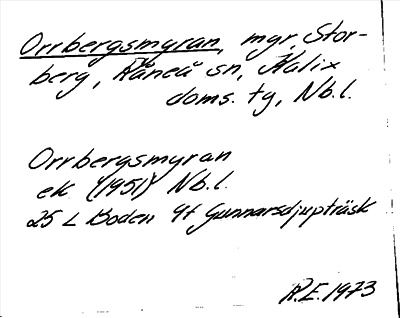 Orrbergsmyran, mgr, Stor-
berg, Råneå sn, Kalix
doms. tg, Nb.l.
Orrbergsmyran
ek. (1951) Nb.l.
25 L Boden 4f Gunnarsdjupträsk
R.E. 1973